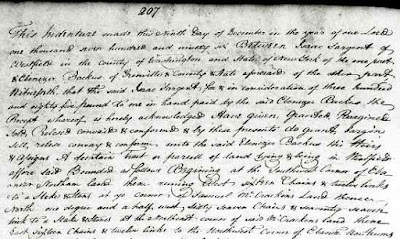 207
This Indenture made this Ninth Day of December in the year of our Lord
one thousand seven hundred and ninety six Between Isaac Sargent of
Westfield in the county of Washington and State of New York of the one part
& Ebenezer Backus of Granville & County & State aforesaid of the other part
Witnesseth that the said Isaac Sargent for & in consideration of three hundred
and eighty five pound to me in hand paid by the said Ebenezer Backus the
Receipt whereof is hereby acknowledged Have given, Granted, Bargained
Sold, Released conveied & confirmed & by these presents do Grant, bargin
Sell, release convey & confirm unto the said Ebenezer Backus his Heirs
& Assigns A certain tract or parcel of land lying & being in Westfield
afore said Bounded as follows Begining at the Southwest Corner of
land then runing West Sixteen Chains & twelve links
to a Stake & Stones at ye corner of land thence
North one degree and a half west, Sixty Seven Chains & seventy Seven
links to a Stake & Stones at the Northeast corner of said land thence
East Sixteen Chains & twelve links to the Northwest corner of